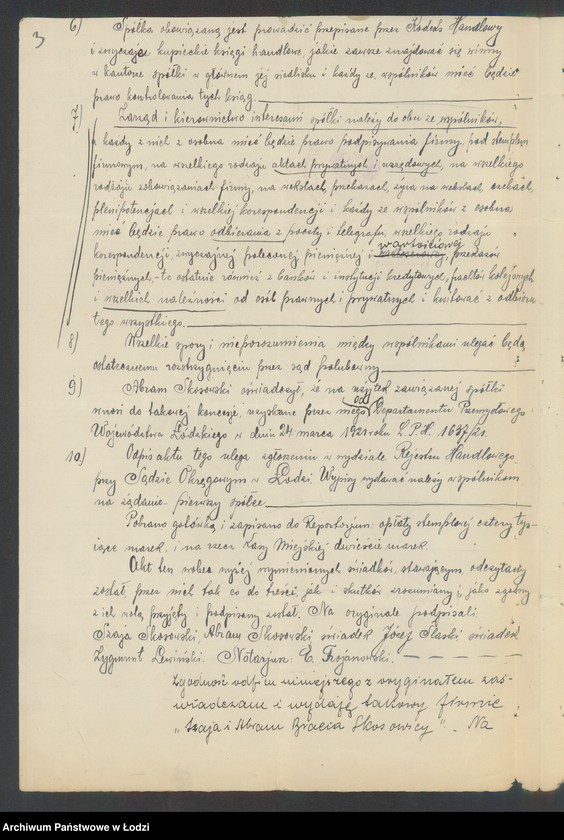 3
6) Spółka obowiązaną jest prowadzić przepisane przez Kodeks Handlowy
i zwyczaje kupieckie księgi handlowe, jakie zawsze znajdować się winny
w kantorze spółki w głównem jej siedlisku i każdy ze wspólników mieć będzie
prawo kontrolowania tych ksiąg.
7) Zarząd i kierownictwo interesami spółki należy do obu ze wspólników,
a każdy z nich z osobna mieć będzie prawo podpisywania firmy, pod stemplem
firmowym, na wszelkiego rodzaju aktach prywatnych i urzędowych, na wszelkiego
rodzaju zobowiązaniach firmy, na wekslach, przekazach, żyra na wekslach, czekach,
plenipotencjach i wszelkiej korespondencji i każdy ze wspólników z osobna
mieć będzie prawo odbierania z poczty i telegrafu wszelkiego rodzaju
wartościowej
korespondencji, zwyczajnej poleconej pieniężnej i przekazów
pieniężnych,- te ostatnie również z banków i instytucji kredytowych, frachtów kolejowych
i wszelkich należności od osób prawnych i prywatnych i kwitować z odbioru
tego wszystkiego.
8) Wszelkie spory i nieporozumienia między wspólnikami ulegać będą
ostatecznemu rozstrzygnięciu przez sąd polubowny
9) Abram Skosowski oświadczył, że na użytek zawiązanej spółki
od
wnosi do takowej koncesje, uzyskane przez niego Departamentu Przemysłowego
Województwa Łódzkiego w dniu 24 marca 1921 roku L.P.H. 1637/21.
10) Odpis aktu tego ulega zgłoszeniu w wydziale Rejestru Handlowego
przy Sądzie Okręgowym w Łodzi. Wypisy wydawać należy wspólnikom
na żądanie - pierwszy spółce
Pobrano gotówką i zapisano do Repertorjum: opłaty stemplowej cztery tys-
iące marek, i na rzecz Kasy Miejskiej dwieście marek.
Akt ten wobec wyżej wymienionych świadków, stawającym odczytany
został, przez nich tak co do treści, jak i skutków zrozumiany i, jako zgodny
z ich wolą, przyjęty i podpisany został. Na oryginale podpisali
Szaja Skosowski, Abram Skosowski, świadek Józef Śląski świadek
Zygmunt Lewiński. Notarjusz: E. Trojanowski.
Zgodność odpisu niniejszego z oryginałem zaś-
wiadczam i wydaję takowy firmie
„Szaja i Abram Bracia Skosowscy". Na
Archiwum Państwowe w Łodzi